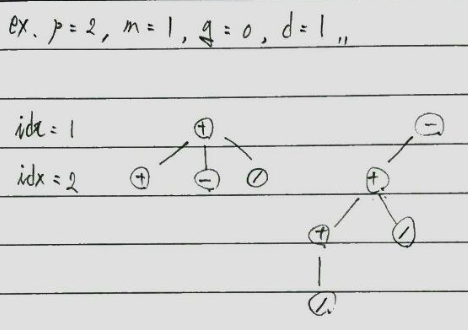 ex. p = 2, m = 1, g = 0, d = 1,,
idx = 1 + -
idx = 2 + - / +
+ /
/